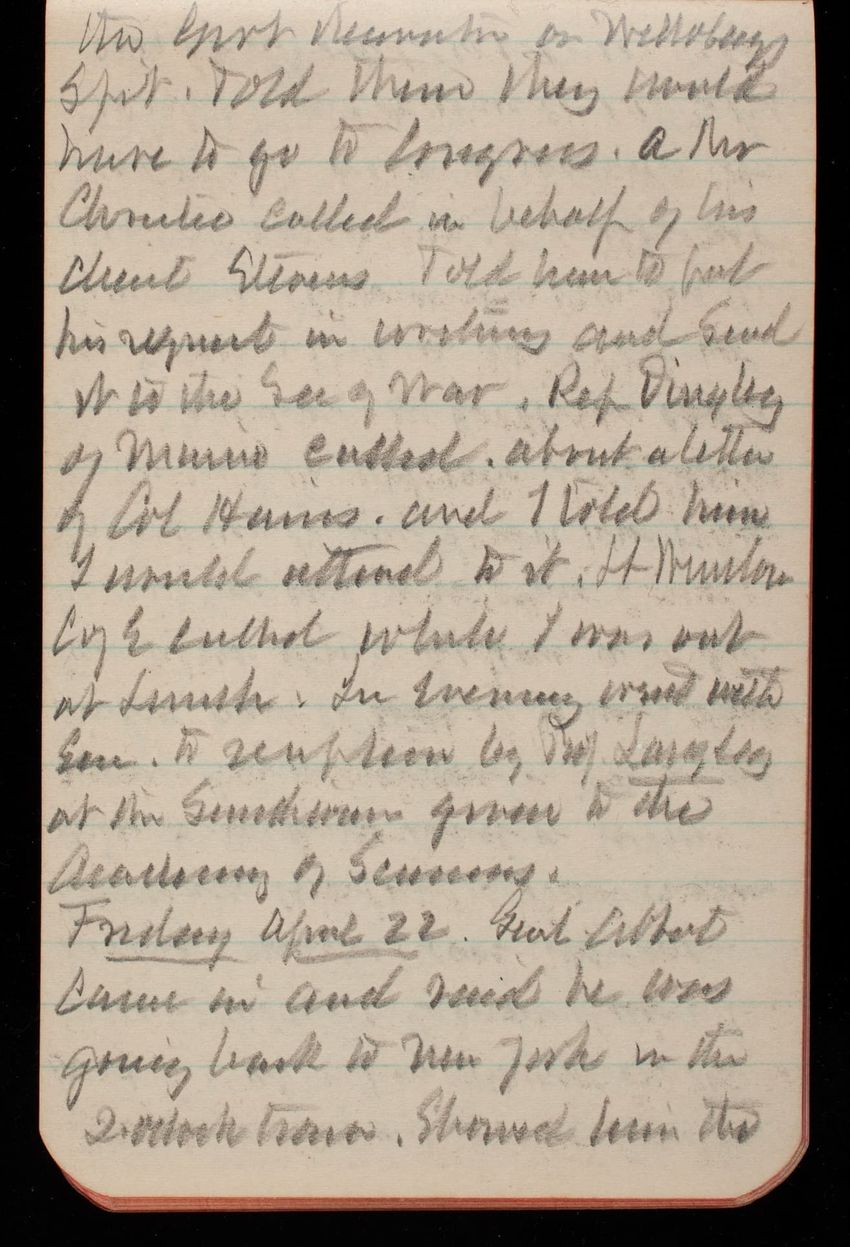 the Govt Reservation on Willoughby
Spit. Told them they would
have to go to Congress. A Mr
Christie called in behalf of his
client Stevens Told him to put
his request in writing and send
it to the Sec of War. Rep Dingley
of Maine called. about a letter
of Col Hains. and I told him
I would attend to it. Lt Winslow
C of E called while I was out
at Lunch. In Evening went with
Gen. to reception by Prof Langley
at the Smithsonian given to the
Academy of Sciences.
Friday April 22. Genl Abbot
came in and said he was
going back to New York in the
2 oclock train. Showed him the